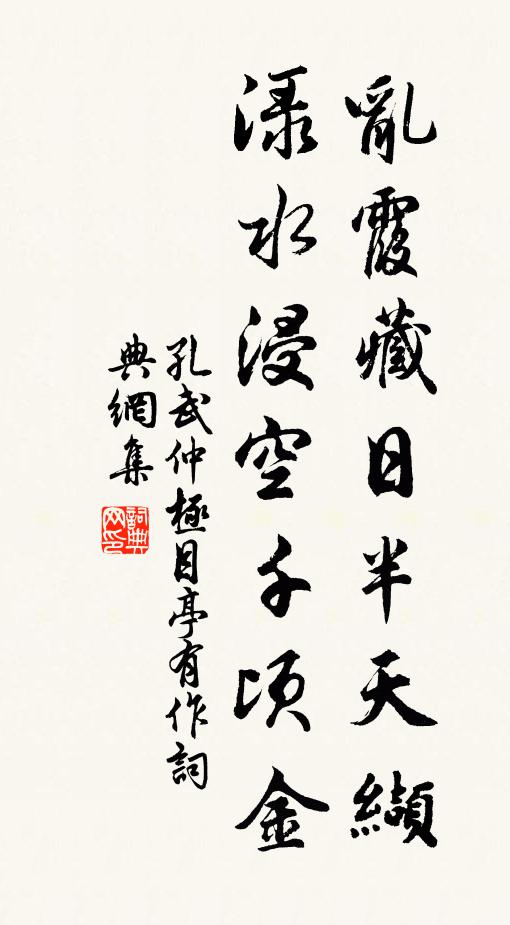 亂霞藏日半天纈
渌水浸空千頃金
孔武仲極目亭有作詞
典網集
詞典网印